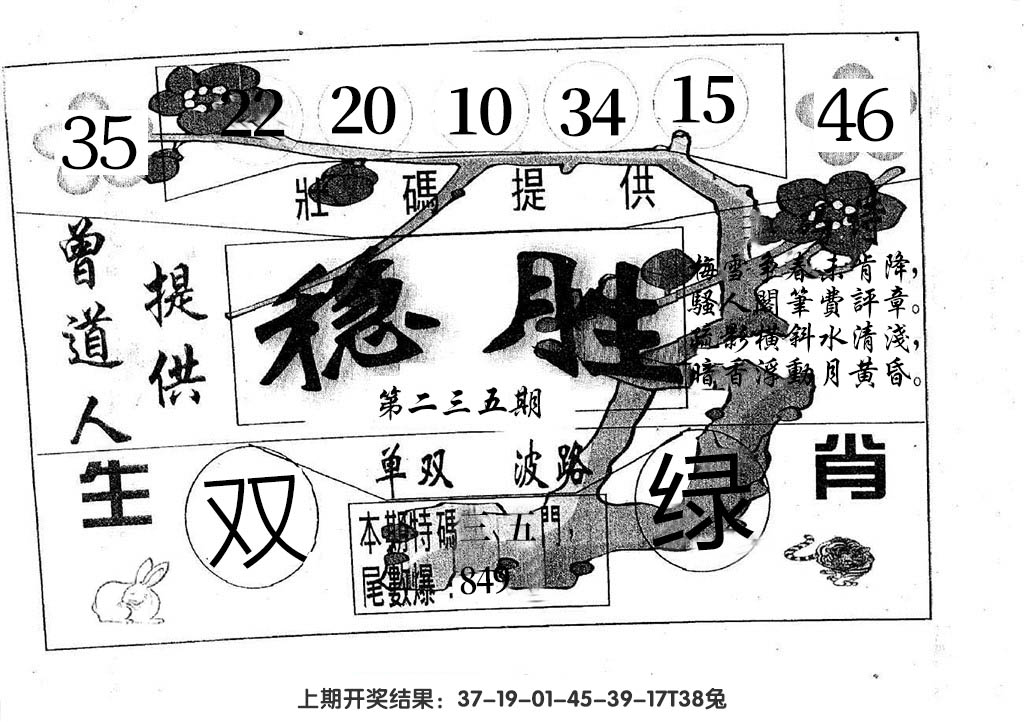 35 22 20 10 34 15 46
壯碼提供
特
曾道人
提供
稳胜
梅雪爭春未肯降，
騷人閣筆費評章。
疏影橫斜水清淺，
暗香浮動月黃昏。
第二三五期
单双 波路
生 肖
双
绿
本期特碼三、五門，
尾數爆：849
上期开奖结果：37-19-01-45-39-17T38兔